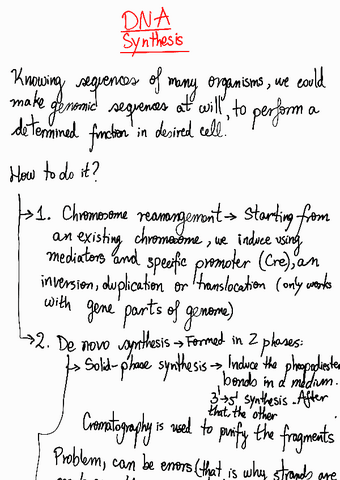 DNA
Synthesis
Knowing sequences of many organisms, we could
make genomic sequences at will, to perform a
determined function in desired cell.
How to do it?
1. Chromosome rearrangement → Starting from
an existing chromosome, we induce using
mediators and specific promoter (Cre), an
inversion, duplication or translocation (only works
with gene parts of genome)
2. De novo synthesis → Formed in 2 phases:
Solid-phase synthesis → Induce the phopodiester
bonds in a medium.
3'→5' synthesis. After
that the other
Cromatography is used to purify the fragments
Problem, can be errors (that is why strands are